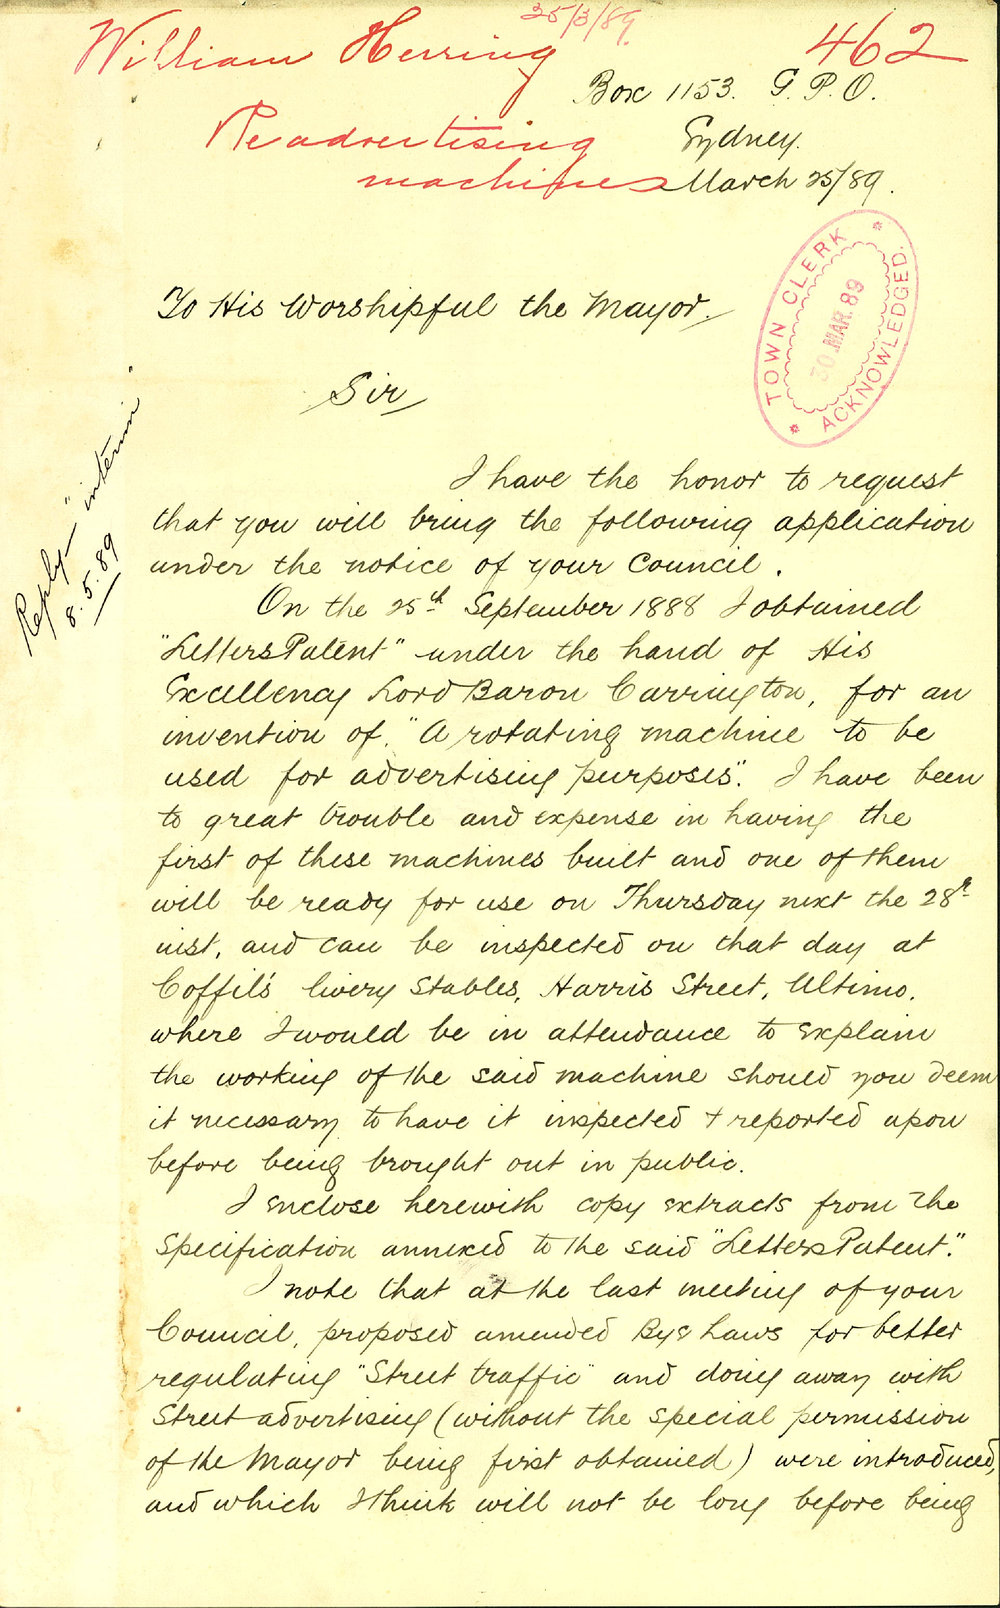 25/3/89.
William Herring
462
Box 1153. G. P. O.
Re advertising
Sydney.
machines
March 25/89.
TOWN CLERK
30 MAR. 89
ACKNOWLEDGED.
To His Worshipful the Mayor.
Sir
Reply "interim"
8.5.89
I have the honor to request
that you will bring the following application
under the notice of your Council.
On the 25th September 1888 I obtained
"Letters Patent" under the hand of His
Excellency Lord Baron Carrington, for an
invention of. "A rotating machine to be
used for advertising purposes". I have been
to great trouble and expense in having the
first of these machines built and one of them
will be ready for use on Thursday next the 28th
inst, and can be inspected on that day at
Coffil's livery Stables, Harris Street, Ultimo.
where I would be in attendance to explain
the working of the said machine should you deem
it necessary to have it inspected & reported upon
before being brought out in public.
I enclose herewith copy extracts from the
specification annexed to the said "Letters Patent."
I note that at the last meeting of your
Council, proposed amended Bye Laws for better
regulating "Street traffic" and doing away with
Street advertising (without the special permission
of the Mayor being first obtained) were introduced,
and which I think will not be long before being